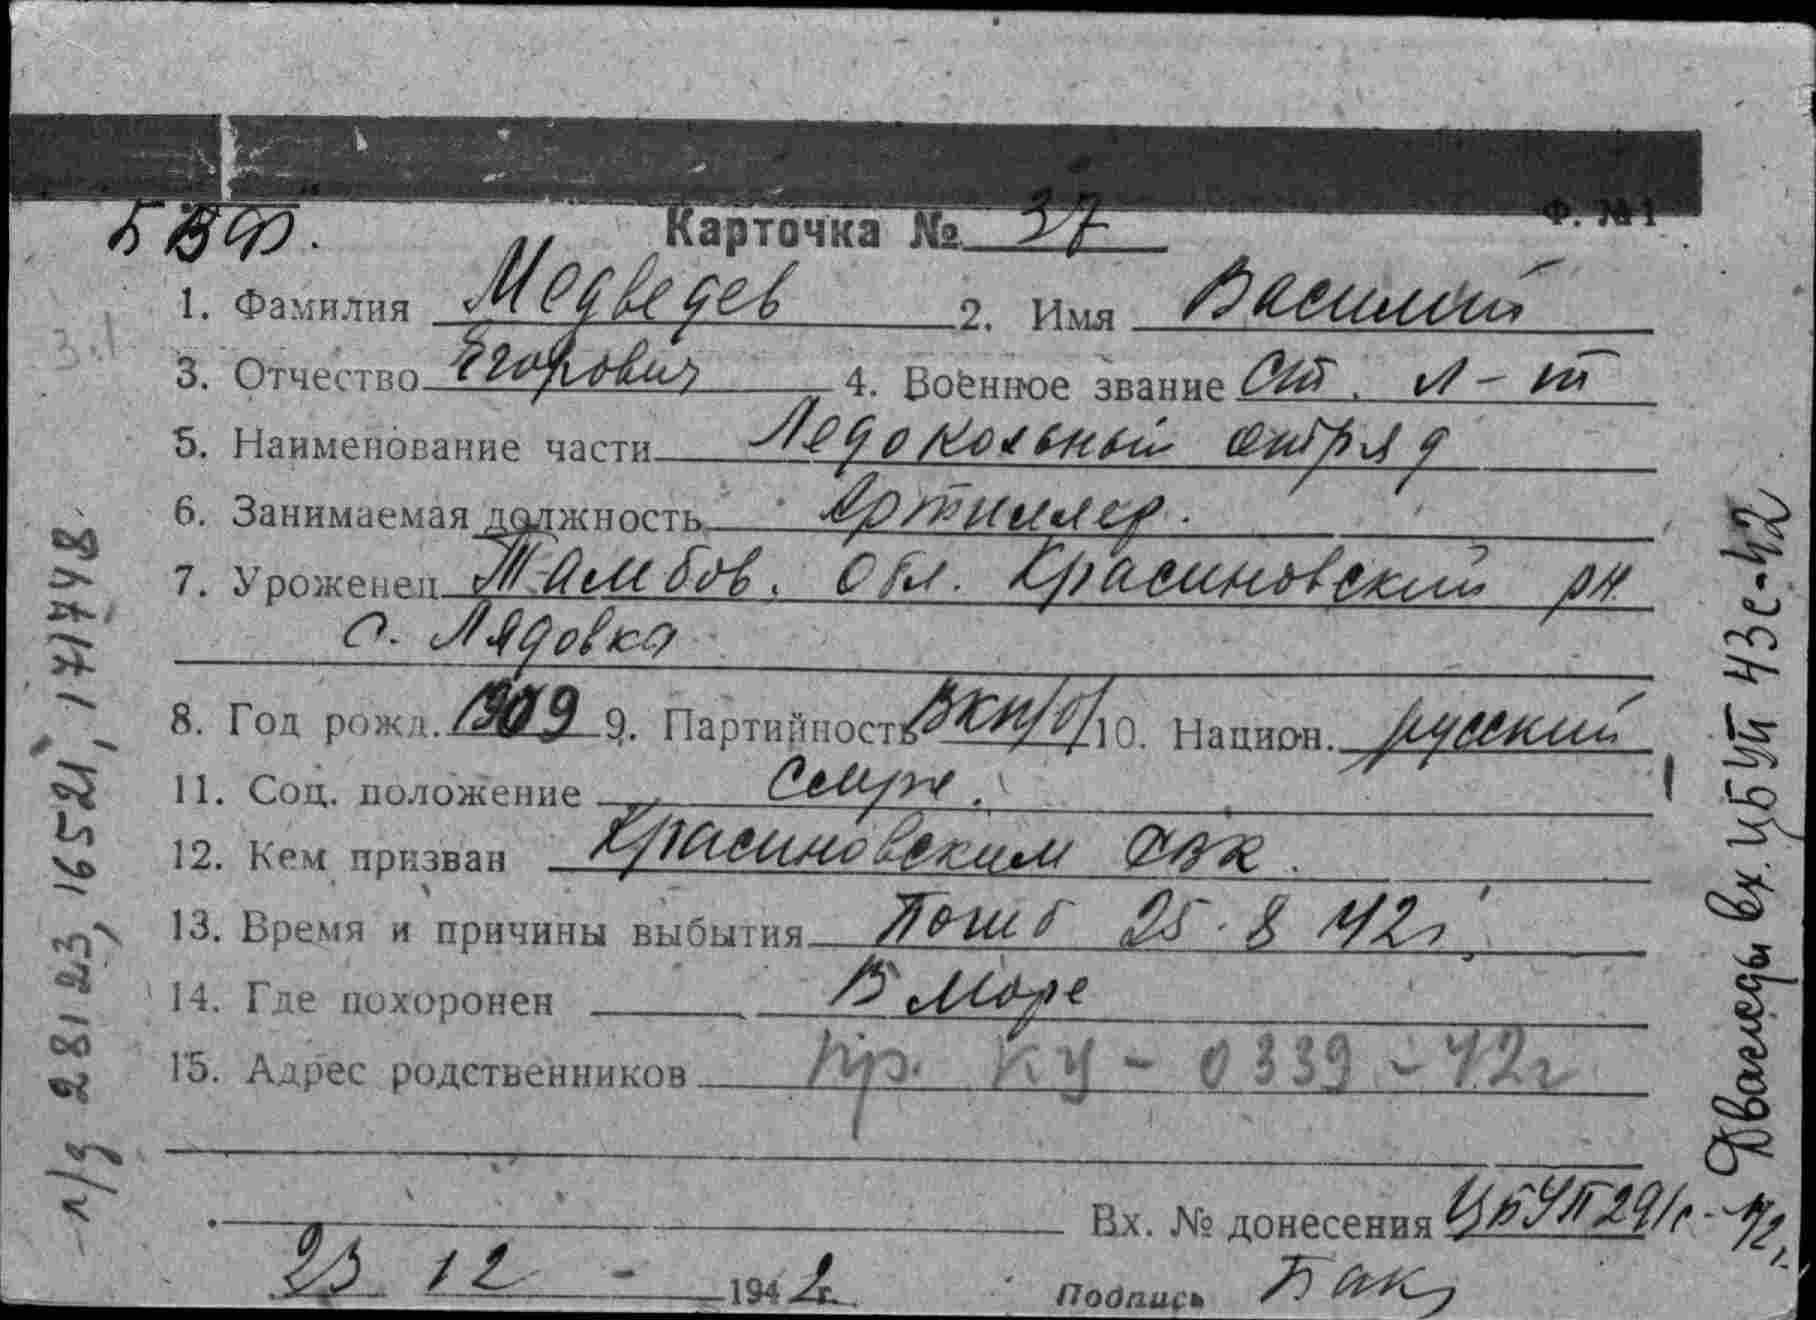 Ф. №1
БВФ.
Карточка № 37
1. Фамилия Медведев 2. Имя Василий
3. Отчество Егорович 4. Военное звание ст. л-т
5. Наименование части Ледокольный отряд
6. Занимаемая должность Артиллер.
7. Уроженец Тамбов. обл. Красиновский рн.
с. Лядовка
8. Год рожд. 1909 9. Партийность ВКП/б/ 10. Национ. русский
11. Соц. положение
12. Кем призван Красиновским
13. Время и причины выбытия Погиб 25.8 42г.
14. Где похоронен В море
15. Адрес родственников пр. КУ - 0339 - 42г
Вх. № донесения ЦБУП 291с - 42г.
23 12 - 1942г.
Подпись Бак
л/д 28123, 16521, 171748
Дважды вх. ЦБУП 43с-42